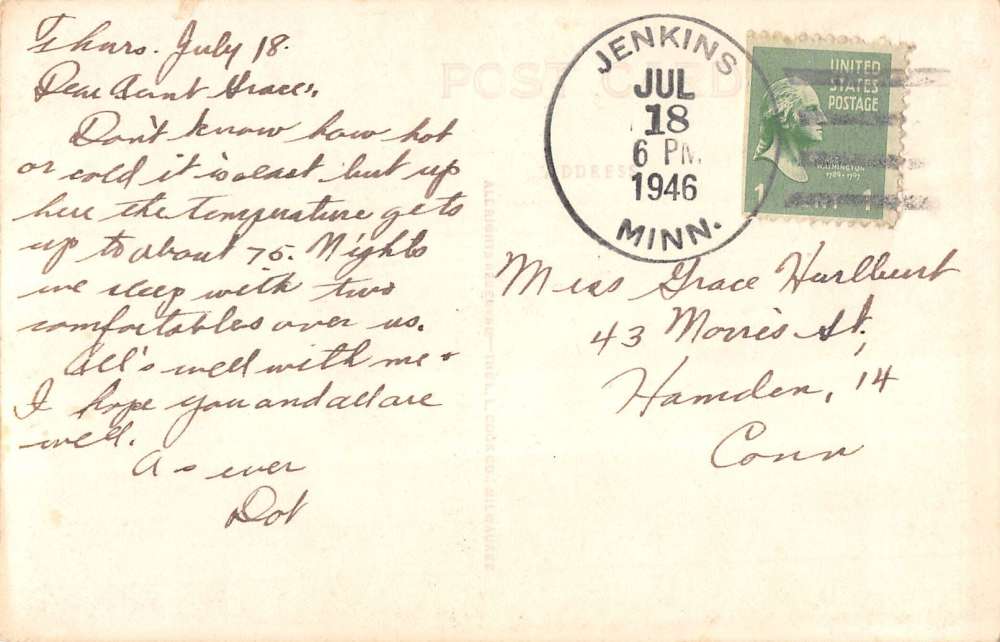 Thurs. July 18.
Dear Aunt Grace,
Don't know how hot
or cold it is east but up
here the temperature gets
up to about 75. Nights
we sleep with two
comfortables over us.
All's well with me +
I hope you and all are
well.
As ever
Dot
POST CARD
ADDRESS
ALL RIGHTS RESERVED—THE L. L. COOK CO., MILWAUKEE
JENKINS
JUL
18
6 PM
1946
MINN.
UNITED
STATES
POSTAGE
WASHINGTON
1789-1797
1 1
Miss Grace Hurlburt
43 Morris St,
Hamden, 14
Conn